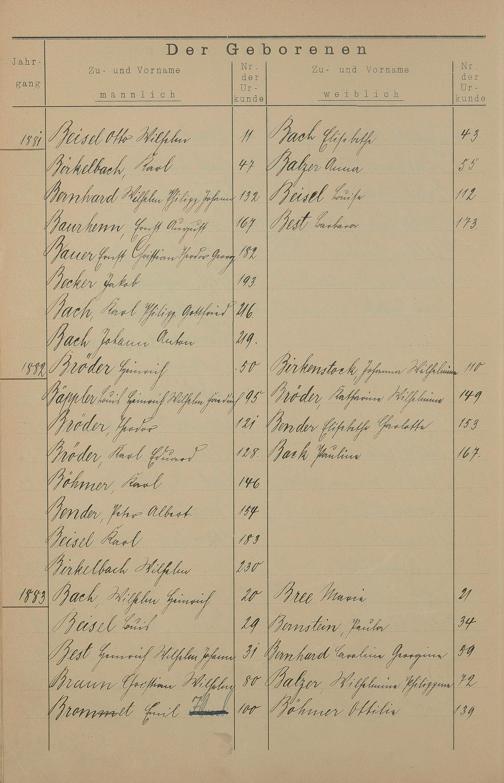 Der Geborenen
Jahrgang Zu- und Vorname männlich Nr. der Urkunde Zu- und Vorname weiblich Nr. der Urkunde
1881 Beisel Otto Wilhelm 11 Bach Elisabethe 43
Birkelbach, Karl 47 Balzer Anna 55
Bernhard Wilhelm Philipp Johann 132 Beisel Louise 112
Baurhenn, Ernst August 167 Best Barbara 173
Bauer Ernst Christian Theodor Georg 182
Becker Jakob 193
Bach, Karl Philipp Gottfried 216
Bach Johann Anton 219.
1882 Bröder Heinrich 50 Birkenstock, Johanna Wilhelmine 110
Bäppler Louis Heinrich Wilhelm Friedrich 95 Bröder, Katharina Wilhelmine 149
Bröder, Theodor 121 Bender Elisabetha Charlotte 153
Bröder, Karl Eduard 128 Back Pauline 167.
Böhmer, Karl 146
Bender, Peter Albert 154
Beisel Karl 183
Birkelbach Wilhelm 230
1883 Bach, Wilhelm Heinrich 20 Bree Maria 21
Beisel Louis 29 Bernstein, Paula 34
Best Heinrich Wilhelm Johann 31 Bernhard Carolina Georgina 39
Braun Christian Wilhelm 80 Balzer, Wilhelmine Philippine 72
Brommet Emil 100 Böhmer Ottilie 139